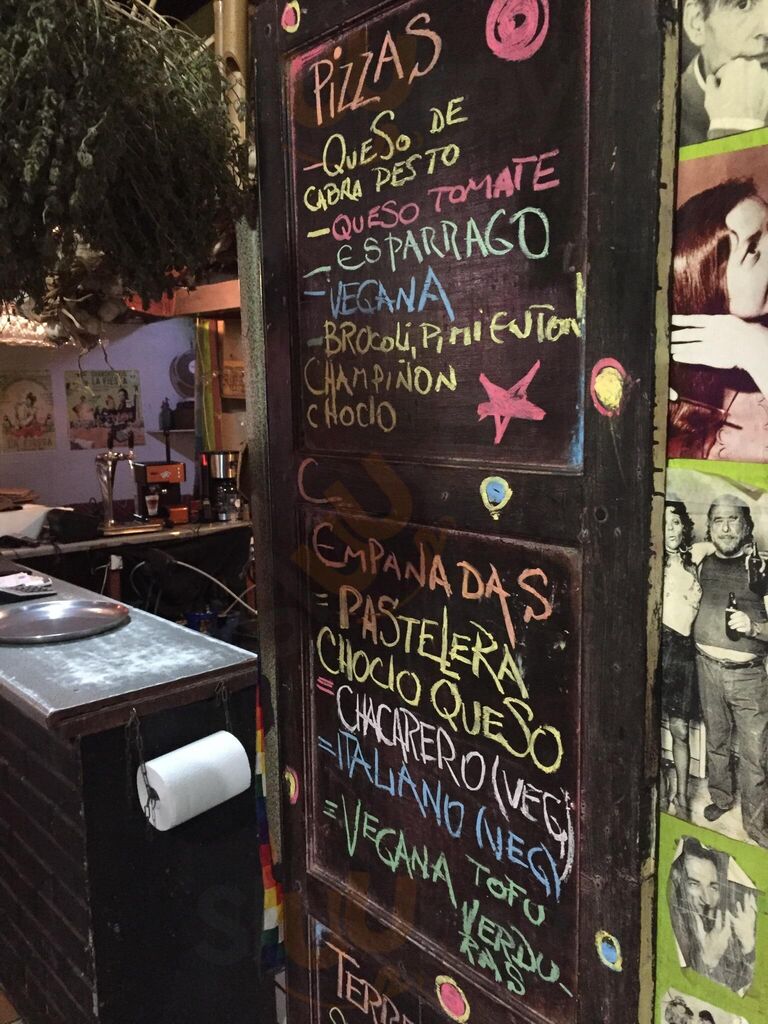 PIZZAS
-QUESO DE
CABRA PESTO
-QUESO TOMATE
-ESPARRAGO
-VEGANA
-BROCOLI, PIMIENTON
CHAMPIÑON
CHOCLO
C
EMPANADAS
=PASTELERA
CHOCLO QUESO
=CHACARERO (VEG)
=ITALIANO (VEG)
=VEGANA TOFU
VERDU-
RAS
LA FIESTA